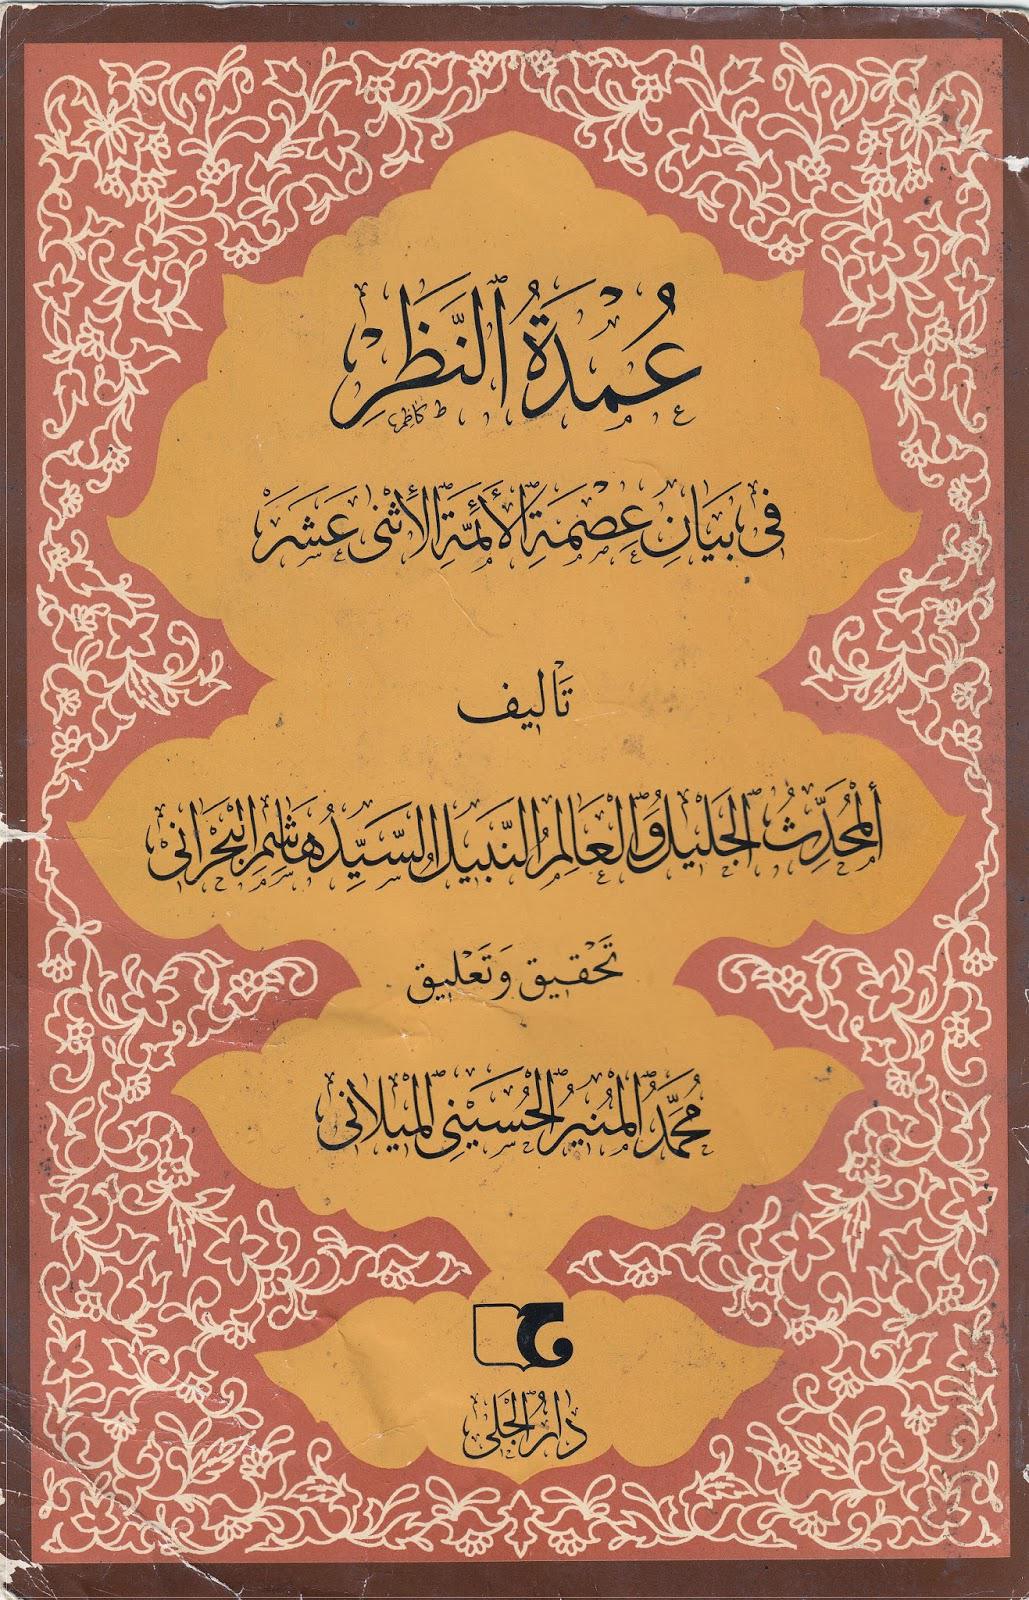 عُمْدَةُ ٱلنَّظَرِ
ط كاظم
فى بَيَانِ عِصْمَةِ ٱلأَئِمَّةِ ٱلأَثْنى عَشَرَ
تَأليف
أَلمُحَدِّثُ ٱلجَليلُ وَٱلعَالِمُ ٱلنَّبيلُ ٱلسَّيِّدُ هَاشِمِ ٱلبَحْرَانى
تَحْقيق وَتَعْليق
مُحَمَّدُ ٱلمُنيرُ ٱلحُسَيْنِى ٱلميلانى
دارُ ٱلجَلى